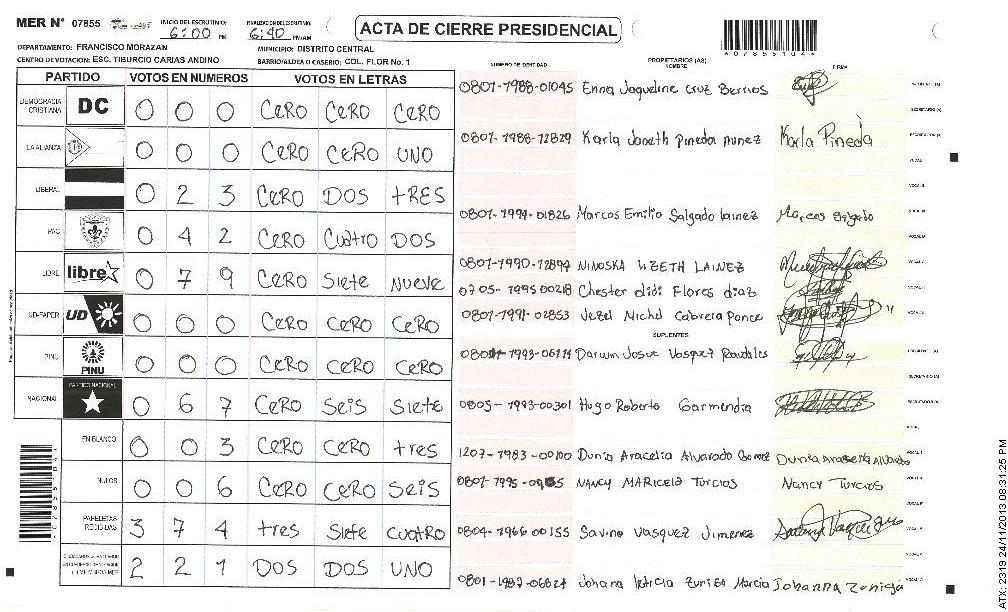 MER N° 07855 INICIO DEL ESCRUTINIO: 6:00 PM FINALIZACION DEL ESCRUTINIO: 6:40 PM-AM
ACTA DE CIERRE PRESIDENCIAL
DEPARTAMENTO: FRANCISCO MORAZAN MUNICIPIO: DISTRITO CENTRAL
CENTRO DE VOTACION: ESC. TIBURCIO CARIAS ANDINO BARRIO/ALDEA O CASERIO: COL. FLOR No. 1
PARTIDO VOTOS EN NUMEROS VOTOS EN LETRAS
DEMOCRACIA CRISTIANA DC 0 0 0 CERO CERO CERO
LA ALIANZA 0 0 0 CERO CERO UNO
LIBERAL 0 2 3 CERO DOS tRES
PAC 0 4 2 CERO CuatRO DOS
LIBRE libre 0 7 9 CERO Siete Nueve
UD-FAPER UD 0 0 0 CERO CERO CERO
PINU PINU 0 0 0 CERO CERO CERO
NACIONAL PARTIDO NACIONAL 0 6 7 CERO Seis Siete
EN BLANCO 0 0 3 CERO CERO tres
NULOS 0 0 6 CERO CERO Seis
PAPELETAS RECIBIDAS 3 7 4 tres Siete CuatRO
2 2 1 DOS DOS UNO
NUMERO DE IDENTIDAD PROPIETARIOS (AS) NOMBRE FIRMA
0801-1988-01045 Enna Jaqueline Cruz Berrios
0801-1988-12829 Karla Janeth Pineda nunez Karla Pineda
0801-1991-01826 Marcos Emilio Salgado lainez Marcos Salgado
0801-1990-12894 NINOSKA LIZETH LAINEZ
0705-1995 00218 Chester didi Flores diaz
0801-1991-02853 Jezel Michel Cabrera Ponce
SUPLENTES
1993-06114 Darwin Josue Vasquez Raudales
0805-1993-00301 Hugo Roberto Garmendia
1207-1983-00100 Dunia Aracelia Alvarado Gomez
0801-1995- NANCY MARICELA TURCIOS Nancy Turcios
0804-1966 00155 Savino Vasquez Jimenez
0801-1987-06824 Johana leticia Zuniga Johanna Zoniga
4078551044
ATX-2319 24/11/2013 08:31:25 PM